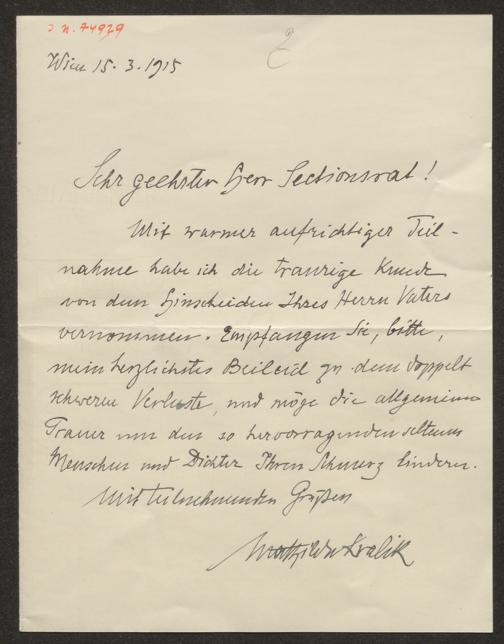 J. N. 74929
Wien 15. 3. 1915
Sehr geehrter Herr Sectionsrat!
Mit warmer aufrichtiger Teil-
nahme habe ich die traurige Kunde
von dem Hinscheiden Ihres Herrn Vaters
vernommen. Empfangen Sie, bitte,
mein herzlichstes Beileid zu dem doppelt
schweren Verluste, und möge die allgemeine
Trauer um den so hervorragenden seltenen
Menschen und Dichter Ihren Schmerz lindern.
Mit teilnehmenden Grüßen
Mathilde Kralik